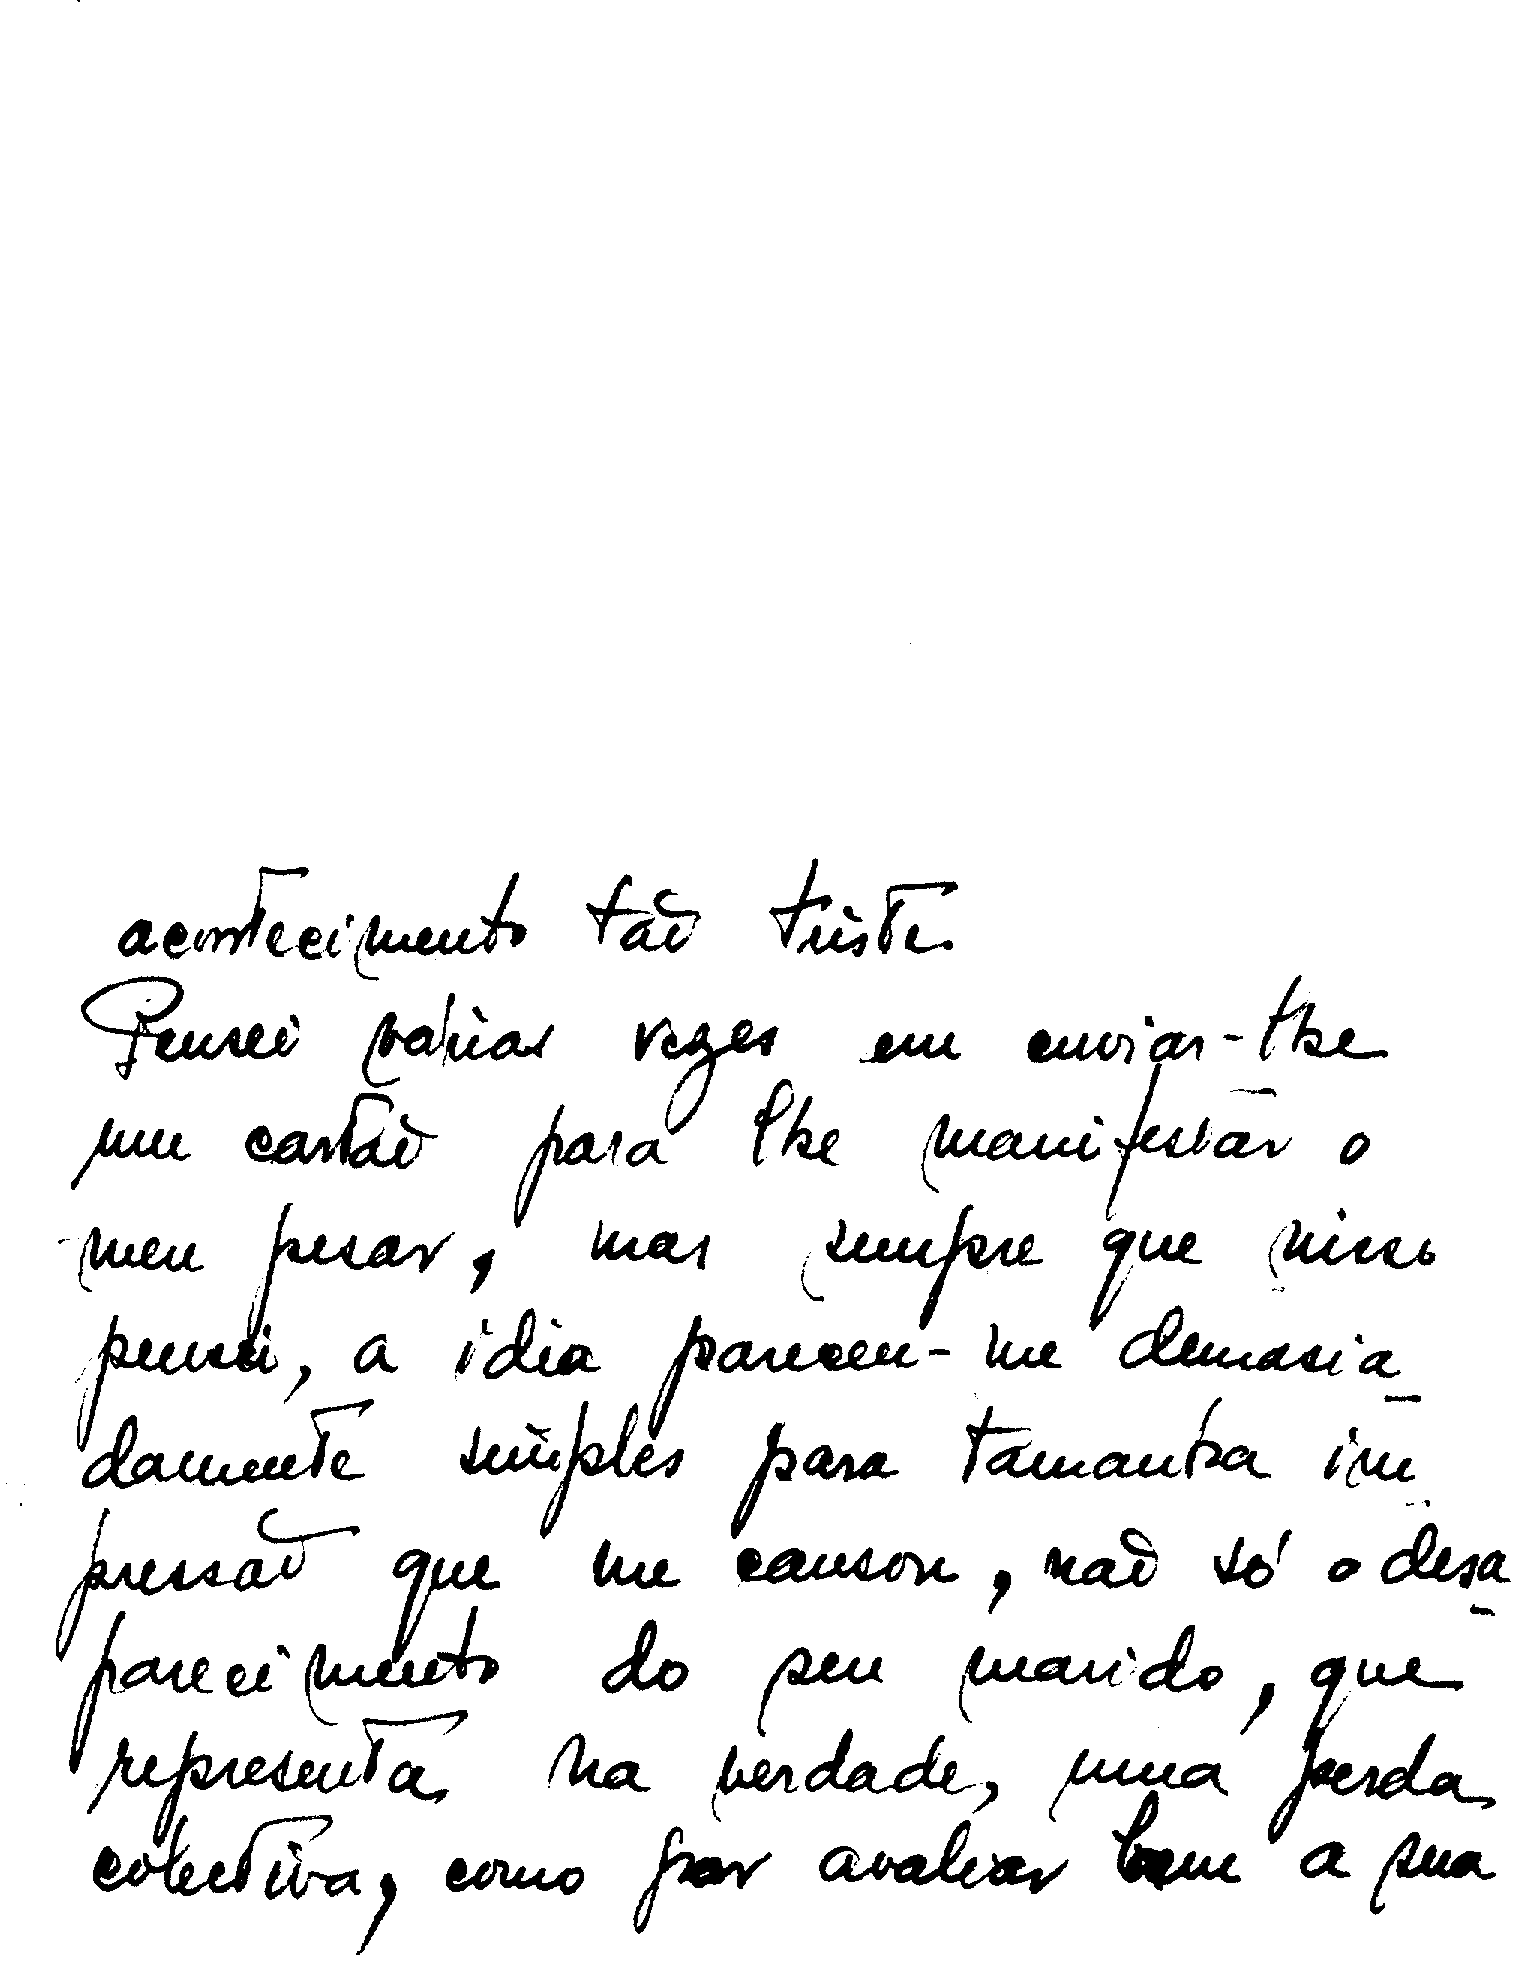 acontecimento tão triste.
Pensei várias vezes em enviar-lhe
um cartão para lhe manifestar o
meu pesar, mas sempre que nisso
pensei, a idia pareceu-me demasia_
damente simples para tamanha im_
pressão que me causou, não só o desa_
parecimento do seu marido, que
representa na verdade, uma perda
colectiva, como por avaliar bem a sua